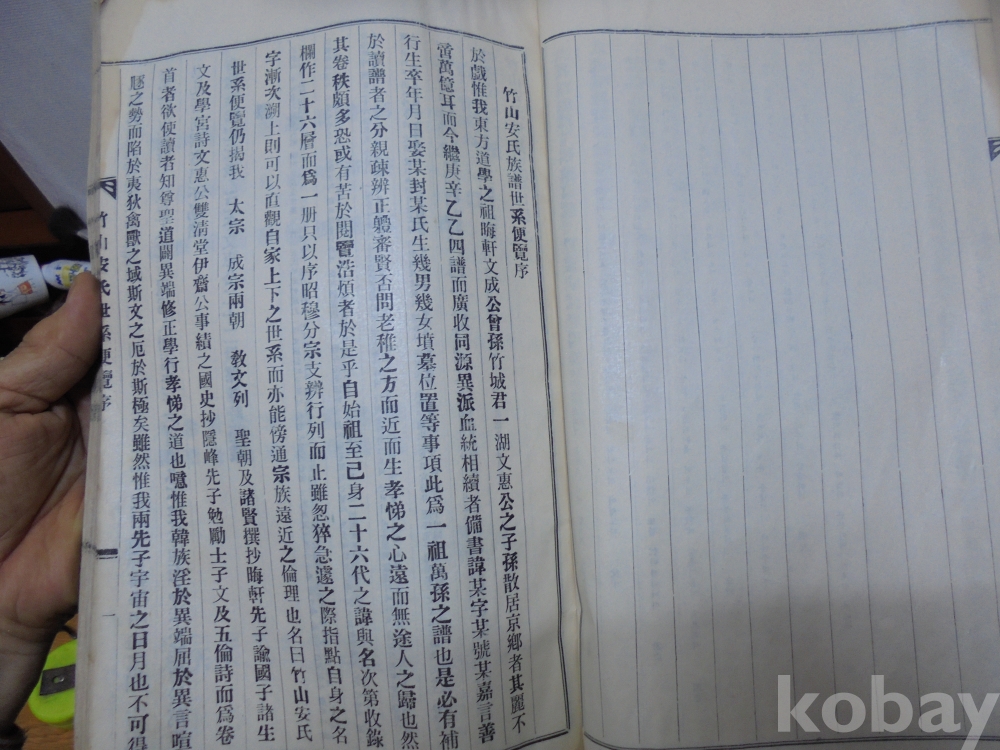 竹山安氏族譜世系便覽序
於戲惟我東方道學之祖晦軒文成公曾孫竹城君一湖文惠公之子孫散居京鄕者其麗不
啻萬億耳而今繼庚辛乙乙四譜而廣收同源異派血統相續者備書諱某字某號某嘉言善
行生卒年月日娶某封某氏生幾男幾女墳墓位置等事項此爲一祖萬孫之譜也是必有補
於讀譜者之分親疎辨正軆審賢否問老稚之方而近而生孝悌之心遠而無途人之歸也然
其卷秩頗多恐或有苦於閱覽浩煩者於是乎自始祖至己身二十六代之諱與名次第收錄
欄作二十六層而爲一册只以序昭穆分宗支辨行列而止雖怱猝急遽之際指點自身之名
字漸次溯上則可以直觀自家上下之世系而亦能傍通宗族遠近之倫理也名曰竹山安氏
世系便覽仍揭我 太宗 成宗兩朝 敎文列 聖朝及諸賢撰抄晦軒先子諭國子諸生
文及學宮詩文惠公雙淸堂伊齋公事績之國史抄隱峰先子勉勵士子文及五倫詩而爲卷
首者欲使讀者知尊聖道闢異端修正學行孝悌之道也噫惟我韓族淫於異端屈於異言喧
豗之勢而陷於夷狄禽獸之域斯文之厄於斯極矣雖然惟我兩先子宇宙之日月也不可得
竹山安氏世系便覽序
一
kobay